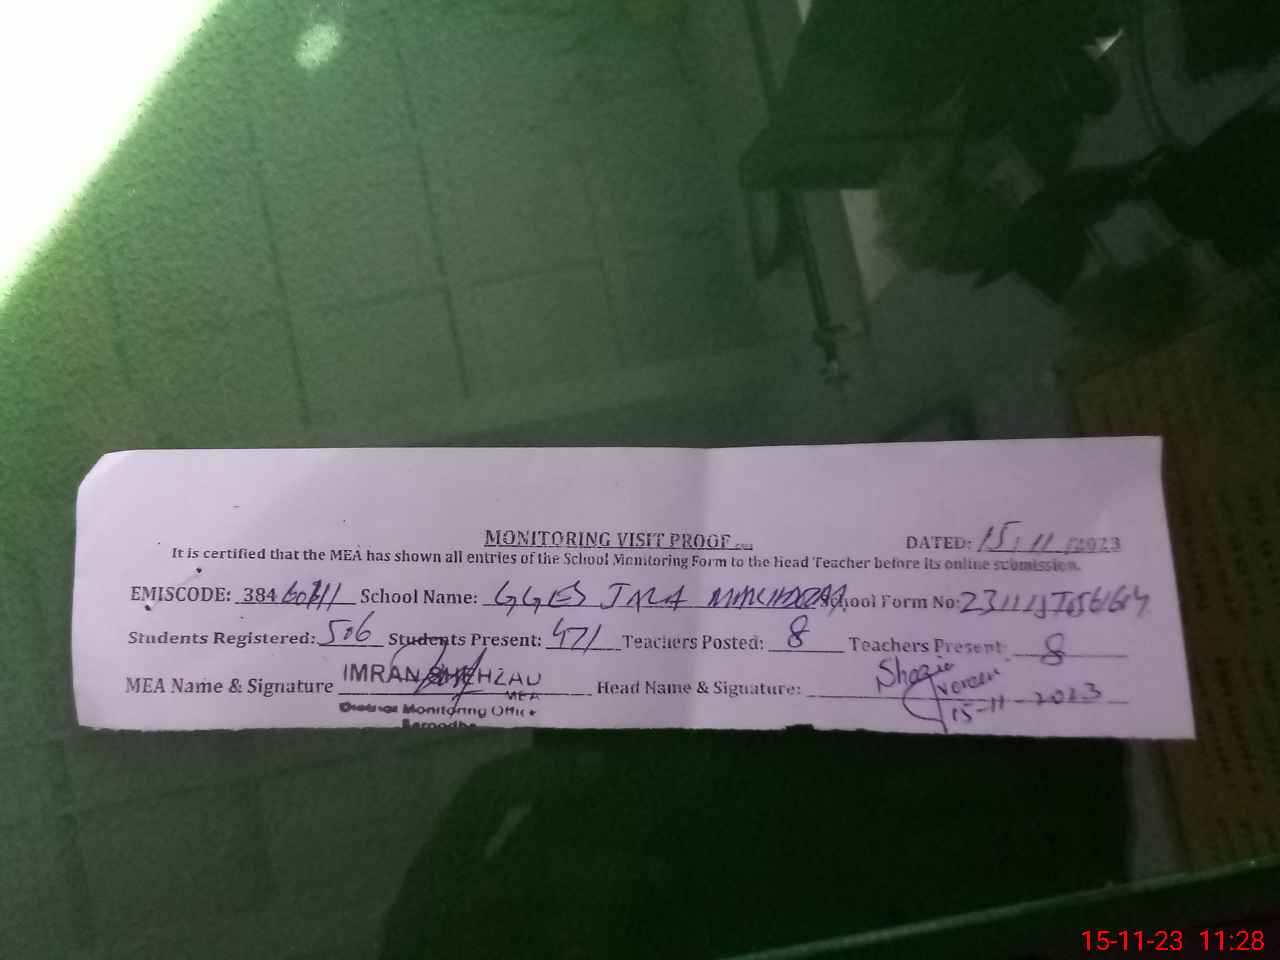 MONITORING VISIT PROOF DATED: 15.11.2023
It is certified that the MEA has shown all entries of the School Monitoring Form to the Head Teacher before its online submission.
EMISCODE: 384 School Name: GGES School Form No:
Students Registered: 506 Students Present: 471 Teachers Posted: 8 Teachers Present: 8
MEA Name & Signature IMRAN SHEHZAD Head Name & Signature: Shazia
MEA
District Monitoring Office 15-11-2023
Sargodha
15-11-23 11:28